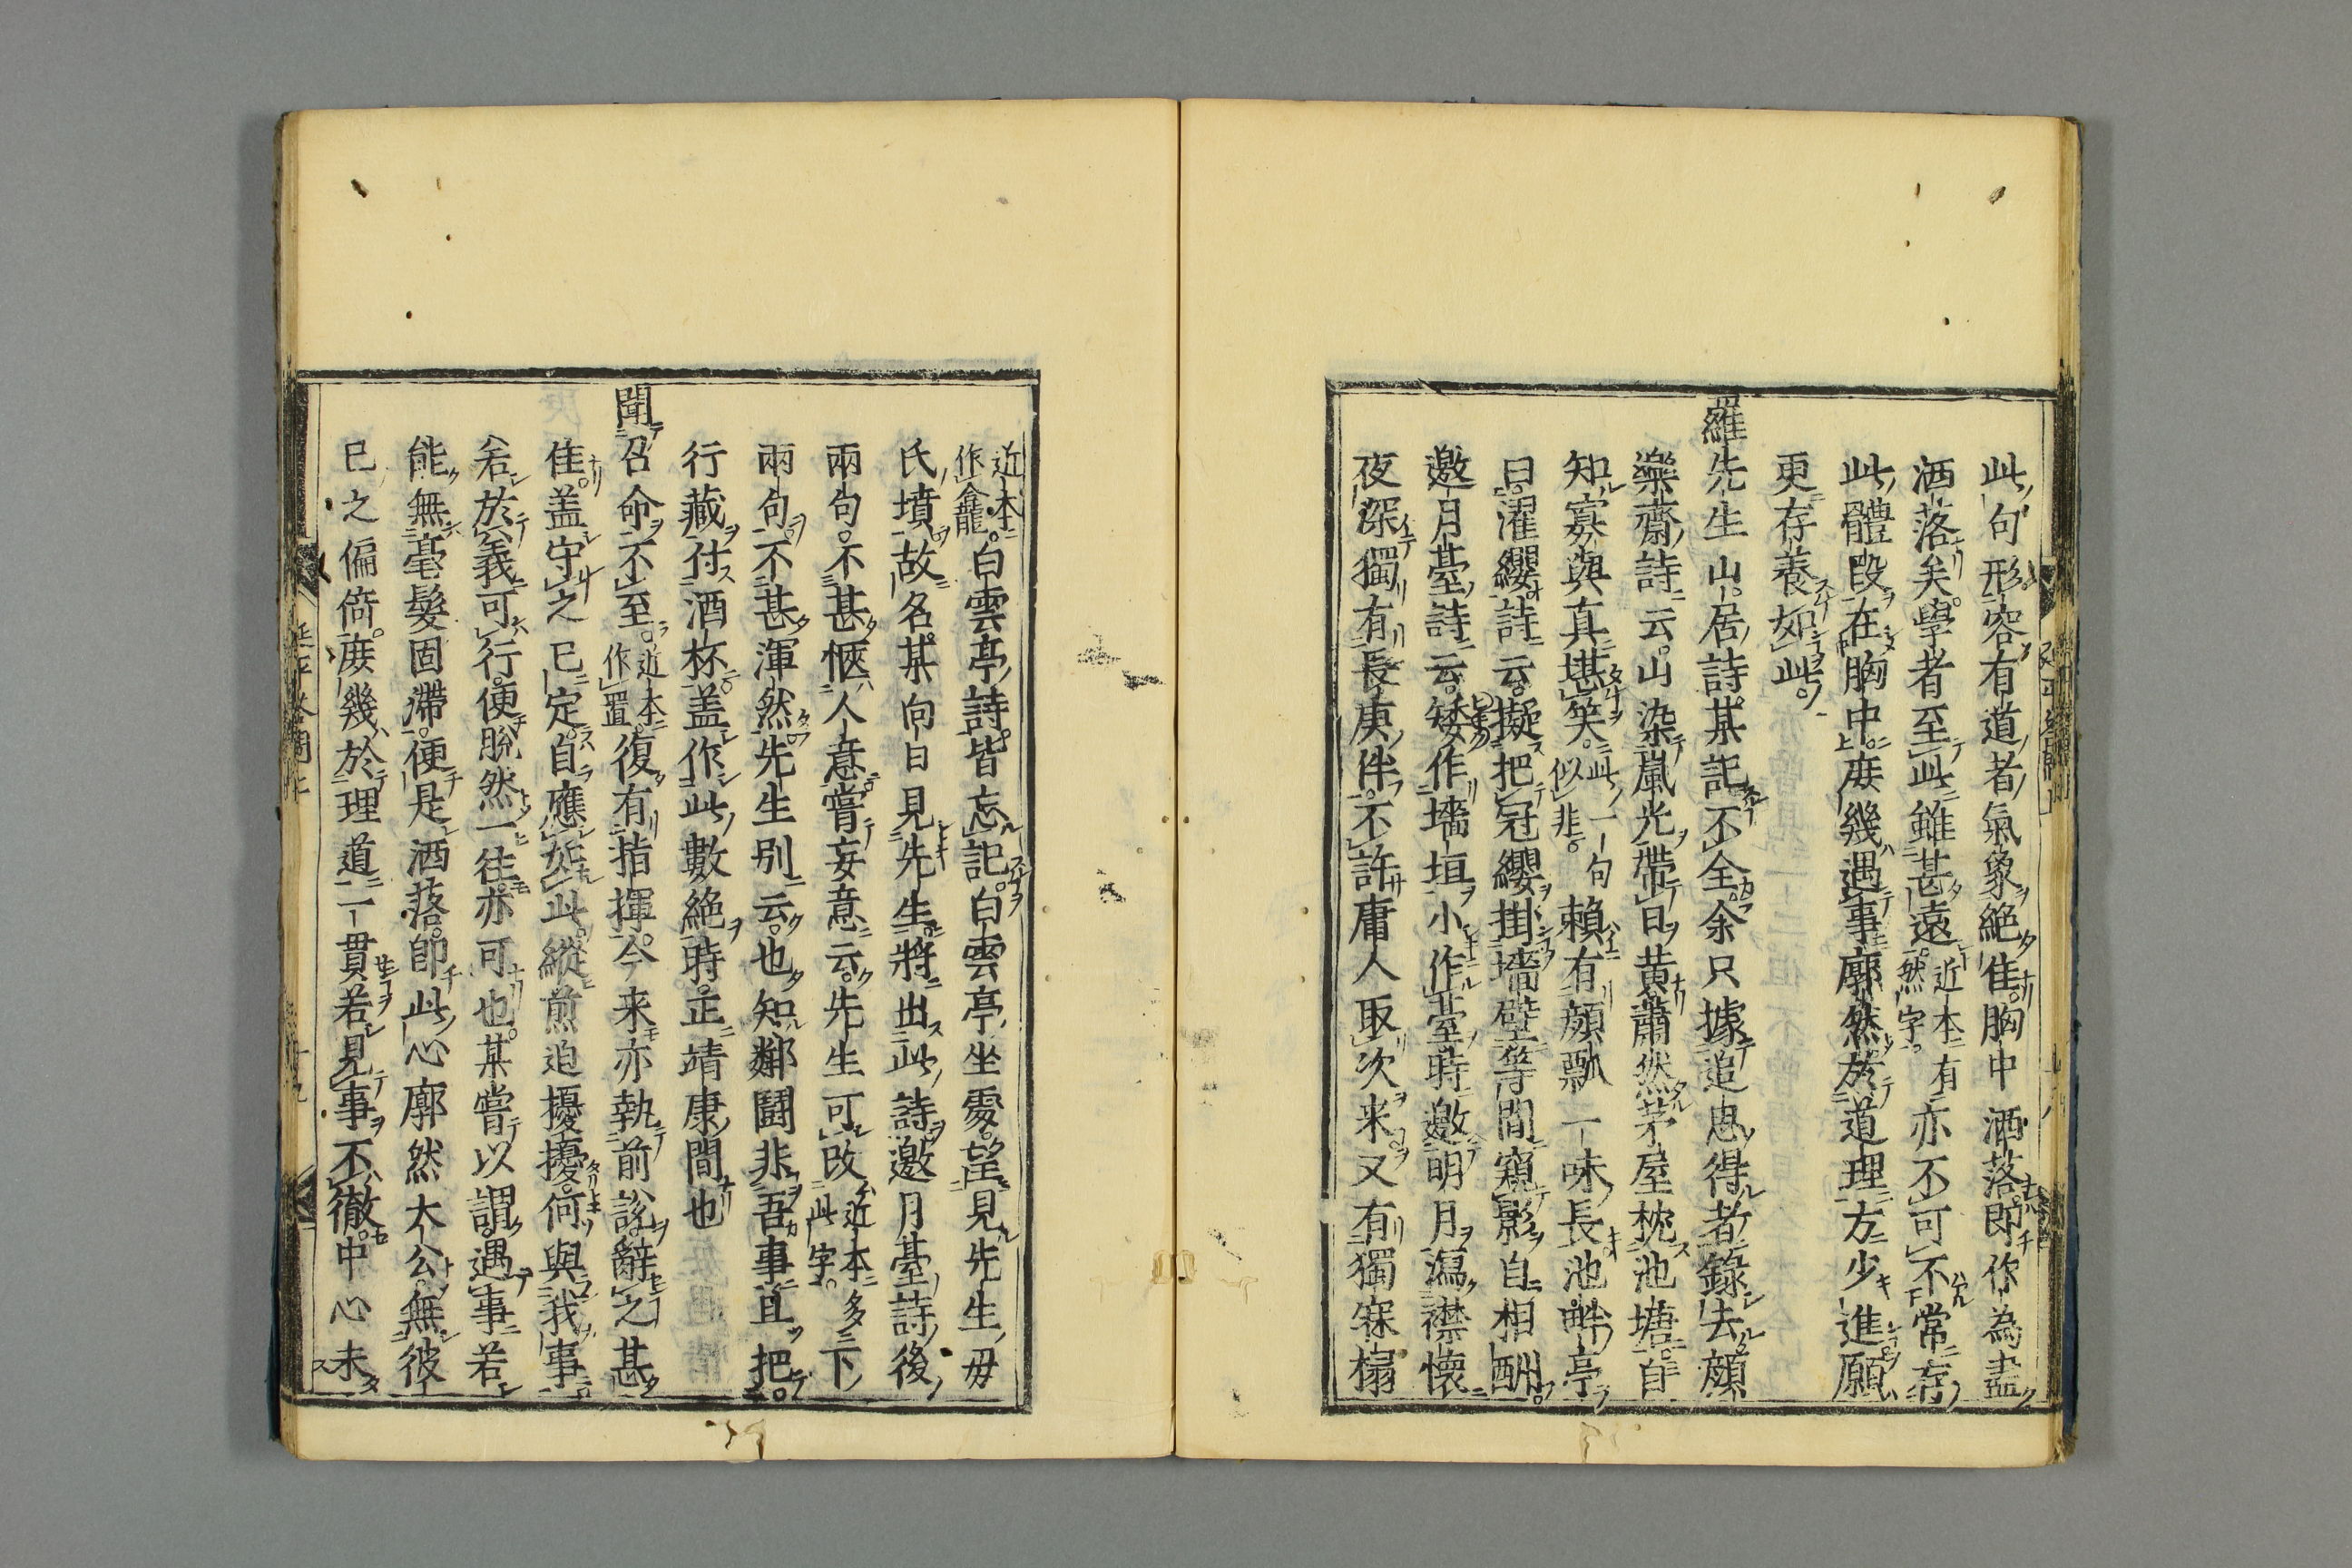 此句形容有道者氣象絕佳胸中洒落即作為盡
洒落矣學者至此雖甚遠近本有然字亦不可不常存
此體段在胸中庶幾遇事廓然於道理方少進願
更存養如此
羅先生山居詩某記不全今只據追思得者錄去顔
樂齋詩云山染嵐光帶日黄蕭然茅屋枕池塘自
知寡與真堪笑此一句似非賴有顔瓢一味長池畔亭
曰濯纓詩云擬把冠纓掛墻壁等閒窺影自相酬
邀月臺詩云矮作墻垣小作臺時邀明月瀉襟懷
夜深獨有長庚伴不許庸人取次来又有獨寐榻
近本作龕白雲亭詩皆忘記白雲亭坐處望見先生毋
氏墳故名某向日見先生將出此詩邀月臺詩後
兩句不甚愜人意嘗妄意云先生可改近本多此字下
兩句不甚渾然先生別云也知鄰鬪非吾事且把
行藏付酒杯盖作此數絕時正靖康間也
聞召命不至近本作置復有指揮今来亦執前說辭之甚
佳盖守之已定自應如此縱煎迫擾擾何與我事
若於義可行便脫然一往亦可也某嘗以謂遇事若
能無毫髮固滯便是洒落即此心廓然大公無彼
已之偏倚庶幾於理道一貫若見事不徹中心未